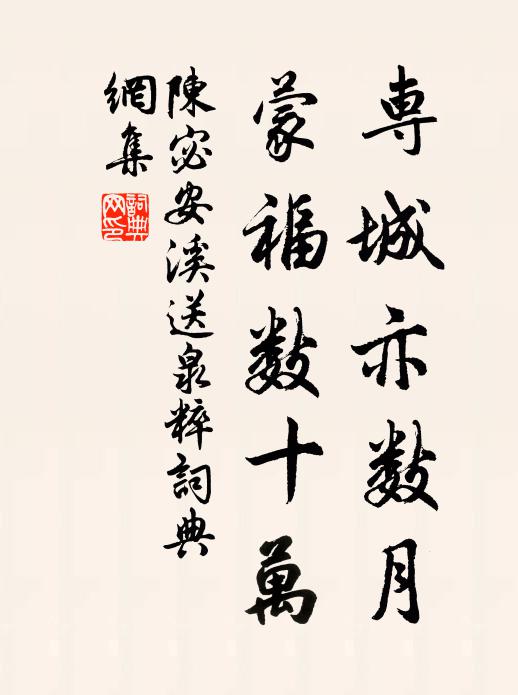 専城亦数月
蒙福数十萬
陳宓安溪送泉粹詞典
網集
詞典网印